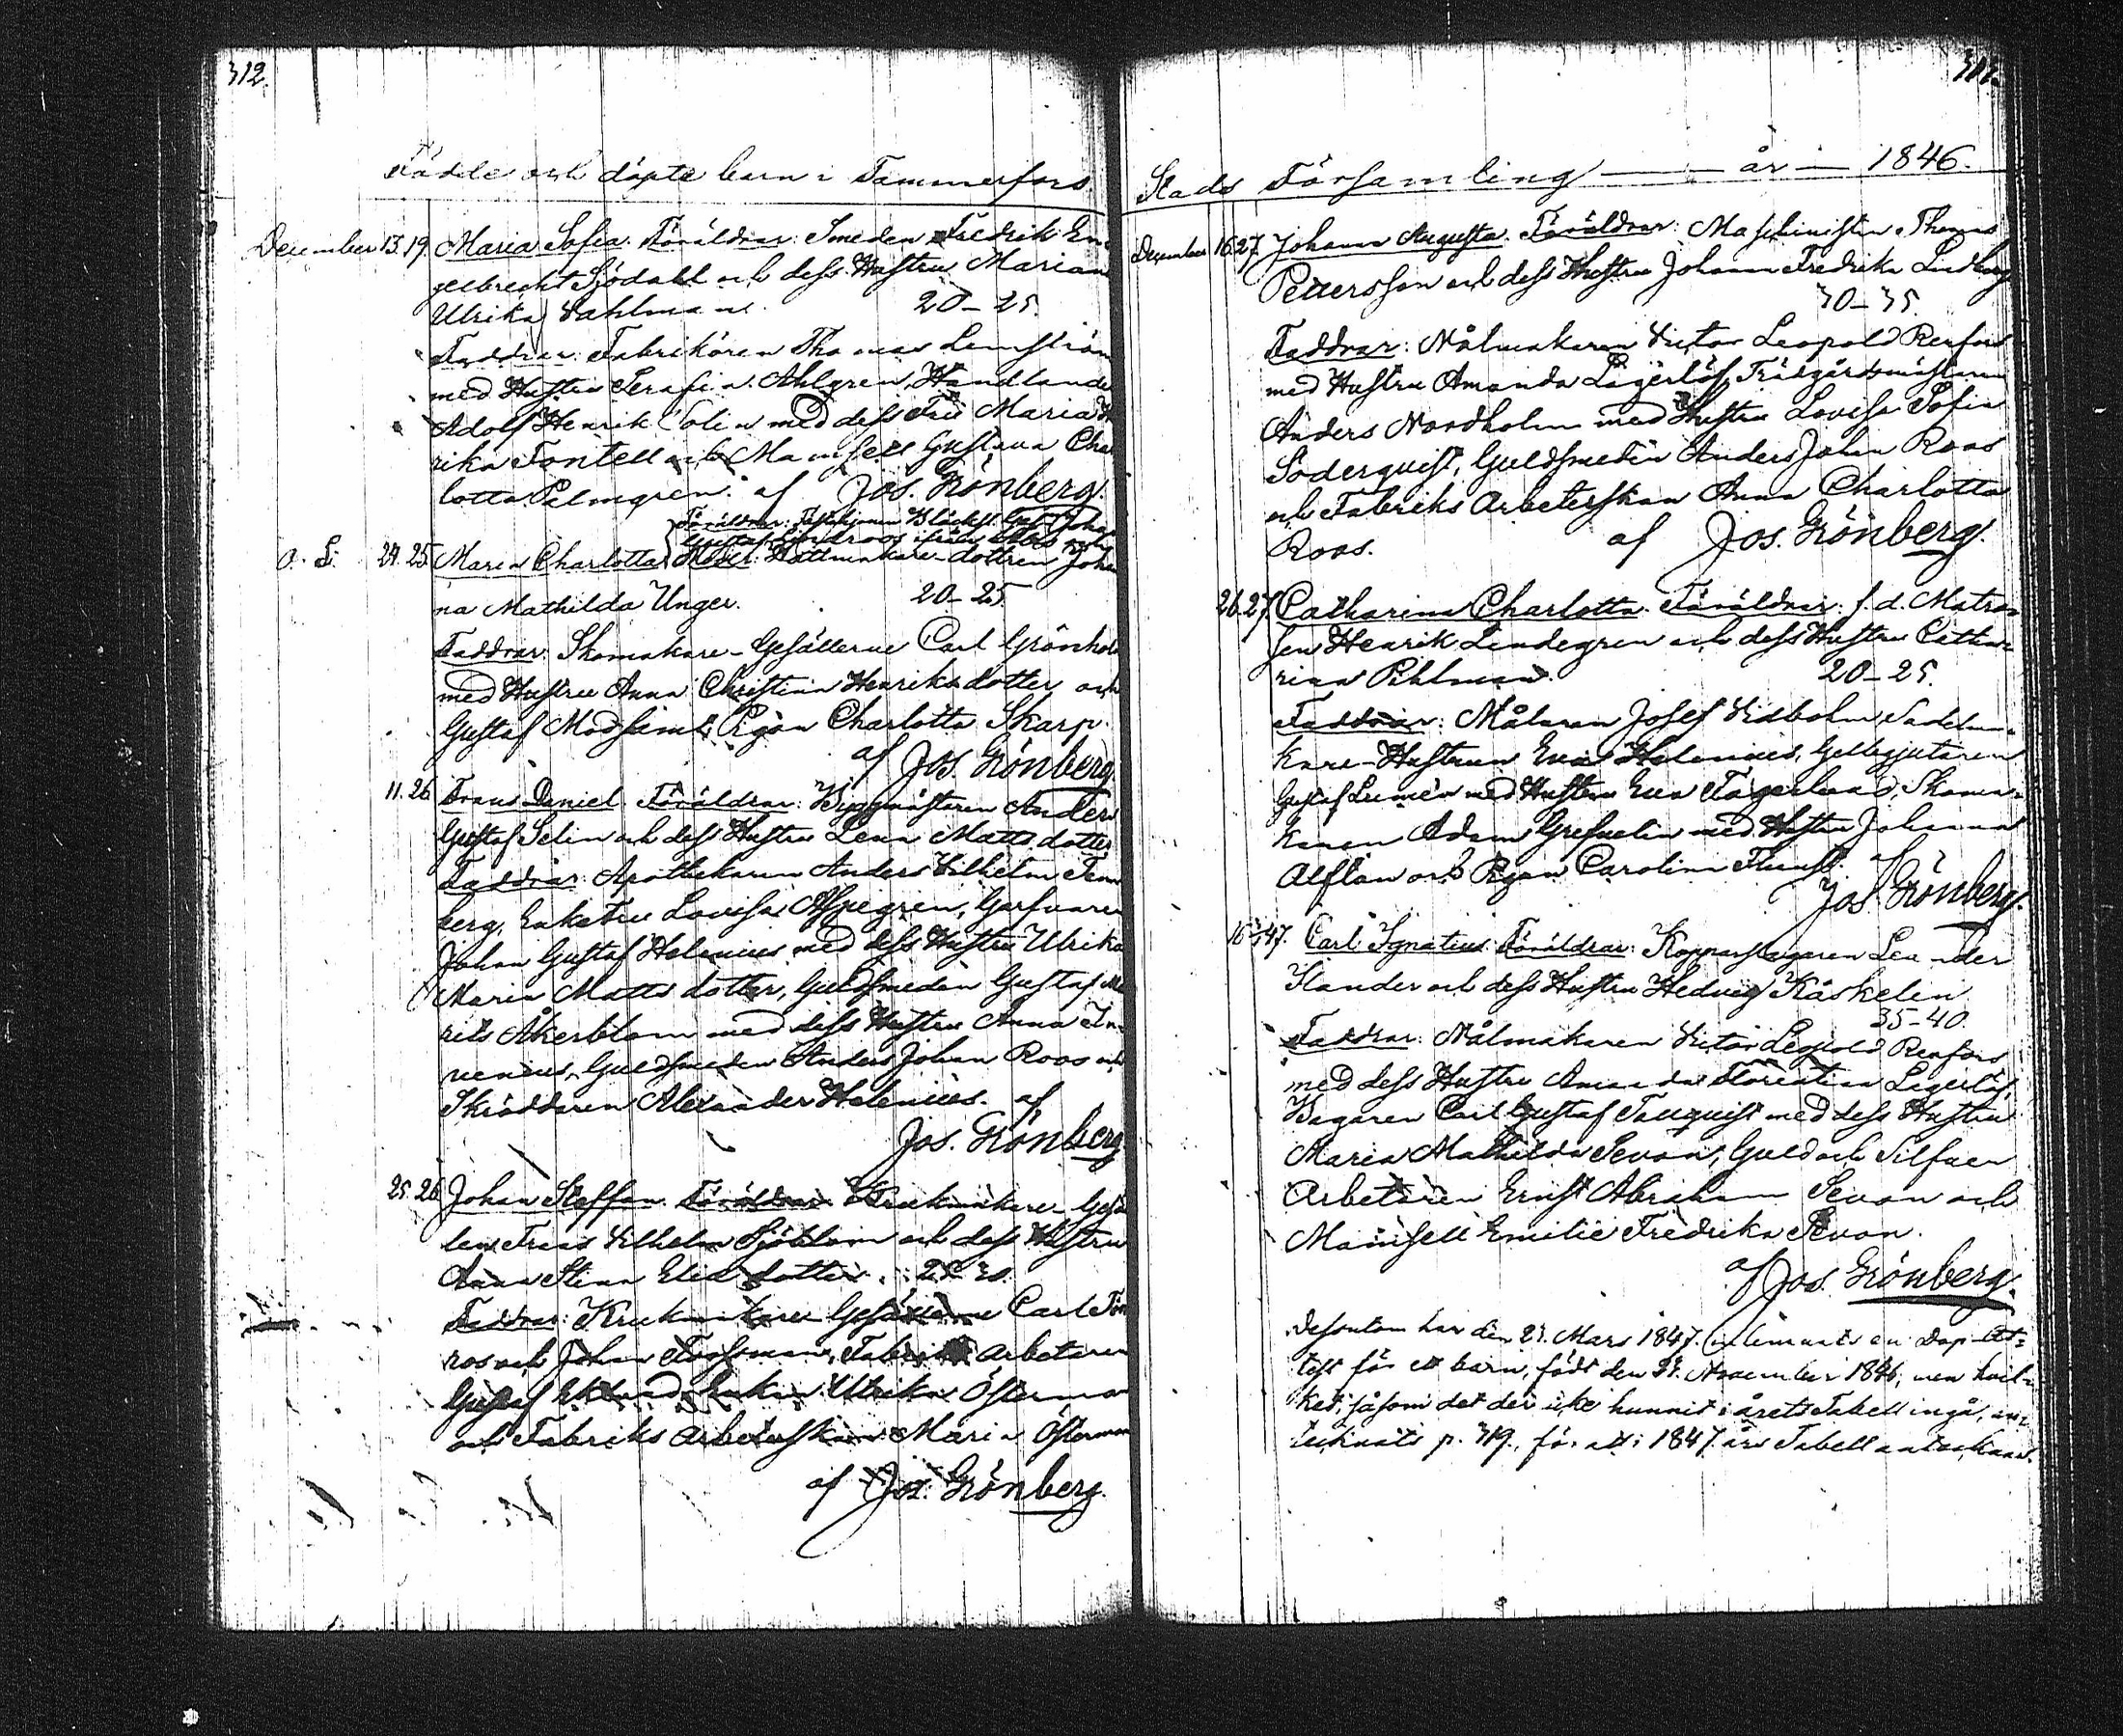 312.
Födde och döpte barn i Tammerfors
December 13. 19. Maria Sofia. Föräldrar: Smeden Fredrik En-
gelbrecht Sjödahl och dess Hustru Maria
Ulrika Dahlman. 20-25.
Faddrar: Fabrikören Thomas Lemström
med Hustru Serafina Ahlgren, Handlande
Adolf Henrik Solin med dess Fru Maria
rika Fontell och Mamsell Gustava Char
lotta Palmgren. af Jos. Grönberg.
Föräldrar: Johan
Gustaf ifrån och
o. Ä. 24. 25. Maria Charlotta. Moder: Hattmakare-dottren Johan
na Mathilda Unger. 20-25
Faddrar: Skomakare-Gesällerne Carl Grönhol
med Hustru Anna Christina Henriksdotter och
Gustaf Pigan Charlotta Skarp.
af Jos. Grönberg.
11. 26. Frans Daniel. Föräldrar: Byggmästaren Anders
Gustaf Selin och dess Hustru Lena Mattsdotter
Faddrar: Apothekaren Anders Vilhelm
berg, Enkefru Lovisa Aspegren, Garfvaren
Johan Gustaf Helenius med dess Hustru Ulrika
Maria Mattsdotter, Guldsmeden Gustaf
rits Åkerblom med dess Hustru Anna
nenius, Guldsmeden Anders Johan Roos och
Skräddaren Alexander Helenius. af
Jos. Grönberg.
25. 26. Johan Steffan. Föräldrar: Krukmakare Gesäl
len Frans Vilhelm Sjöblom och dess Hustru
Anna Stina Eliedotter. 25-30.
Faddrar: Krukmakare Gesällerne Carl
ros och Johan Forssman, Fabriks Arbetaren
Gustaf Eklund, Enkan Ulrika Österman
och Fabriks Arbeterskan Maria Österman
af Jos. Grönberg.
Stads Församling — år — 1846.
December 16. 27. Johanna Augusta. Föräldrar: Maschinisten Thomas
Pettersson och dess Hustru Johanna Fredrika Lindberg
30-35.
Faddrar: Nålmakaren Victor Leopold Renfors
med Hustru Amanda Lagerlöf, Trädgårdsmästaren
Anders Nordholm med Hustru Lovisa Sofia
Söderquist, Guldsmeden Anders Johan Roos
och Fabriks Arbeterskan Anna Charlotta
Roos. af Jos. Grönberg.
26. 27. Catharina Charlotta. Föräldrar: f.d. Matro-
sen Henrik Lindegren och dess Hustru Catha-
rina Pihlman. 20-25.
Faddrar: Målaren Josef Vidbohm, Sadelma-
kare-Hustrun Eva Helenius, Gelbgjutaren
Gustaf Lumén med Hustru Eva Fagerlund, Skoma-
karen Adam Grefvelin med Hustru Johanna
och Pigan Carolina af
Jos. Grönberg.
47. Carl Ignatius. Föräldrar: Kopparslagaren Leander
Stander och dess Hustru Hedvig Käskelen
35-40.
Faddrar: Nålmakaren Victor Leopold Renfors
med dess Hustru Amanda Florentina Lagerlöf,
Bagaren Carl Gustaf med dess Hustru
Maria Mathilda Sevon, Guld och Silfver
Arbetaren Ernst Abraham Sevon och
Mamsell Emilie Fredrika Sevon.
af Jos. Grönberg.
Dessutom har den 21. Mars 1847. inlemnats en Dop-At-
test för ett barn, födt den November 1846, men hvil-
ket, såsom det der icke hunnit i årets Tabell ingå, an-
tecknats p. 319., för att i 1847. års Tabell